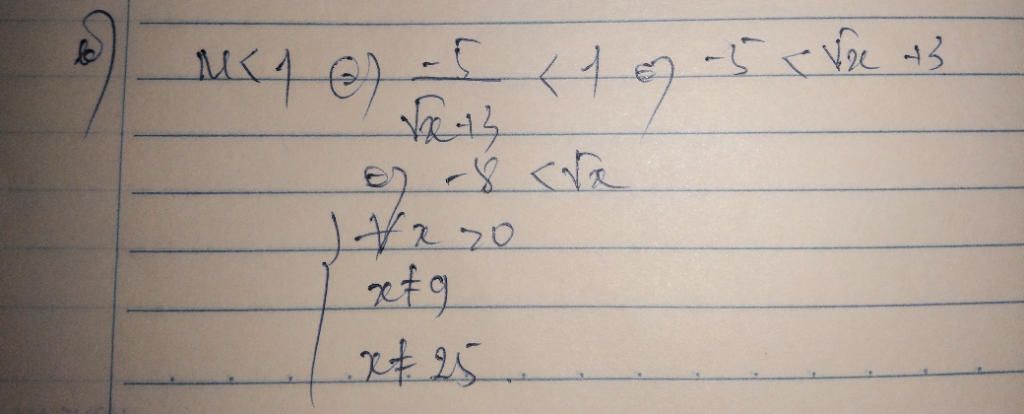 b) M < 1 ⇔ -5/(√x+3) < 1 ⇔ -5 < √x +3
⇔ -8 < √x
{ ∀x >0
x ≠ 9
x ≠ 25